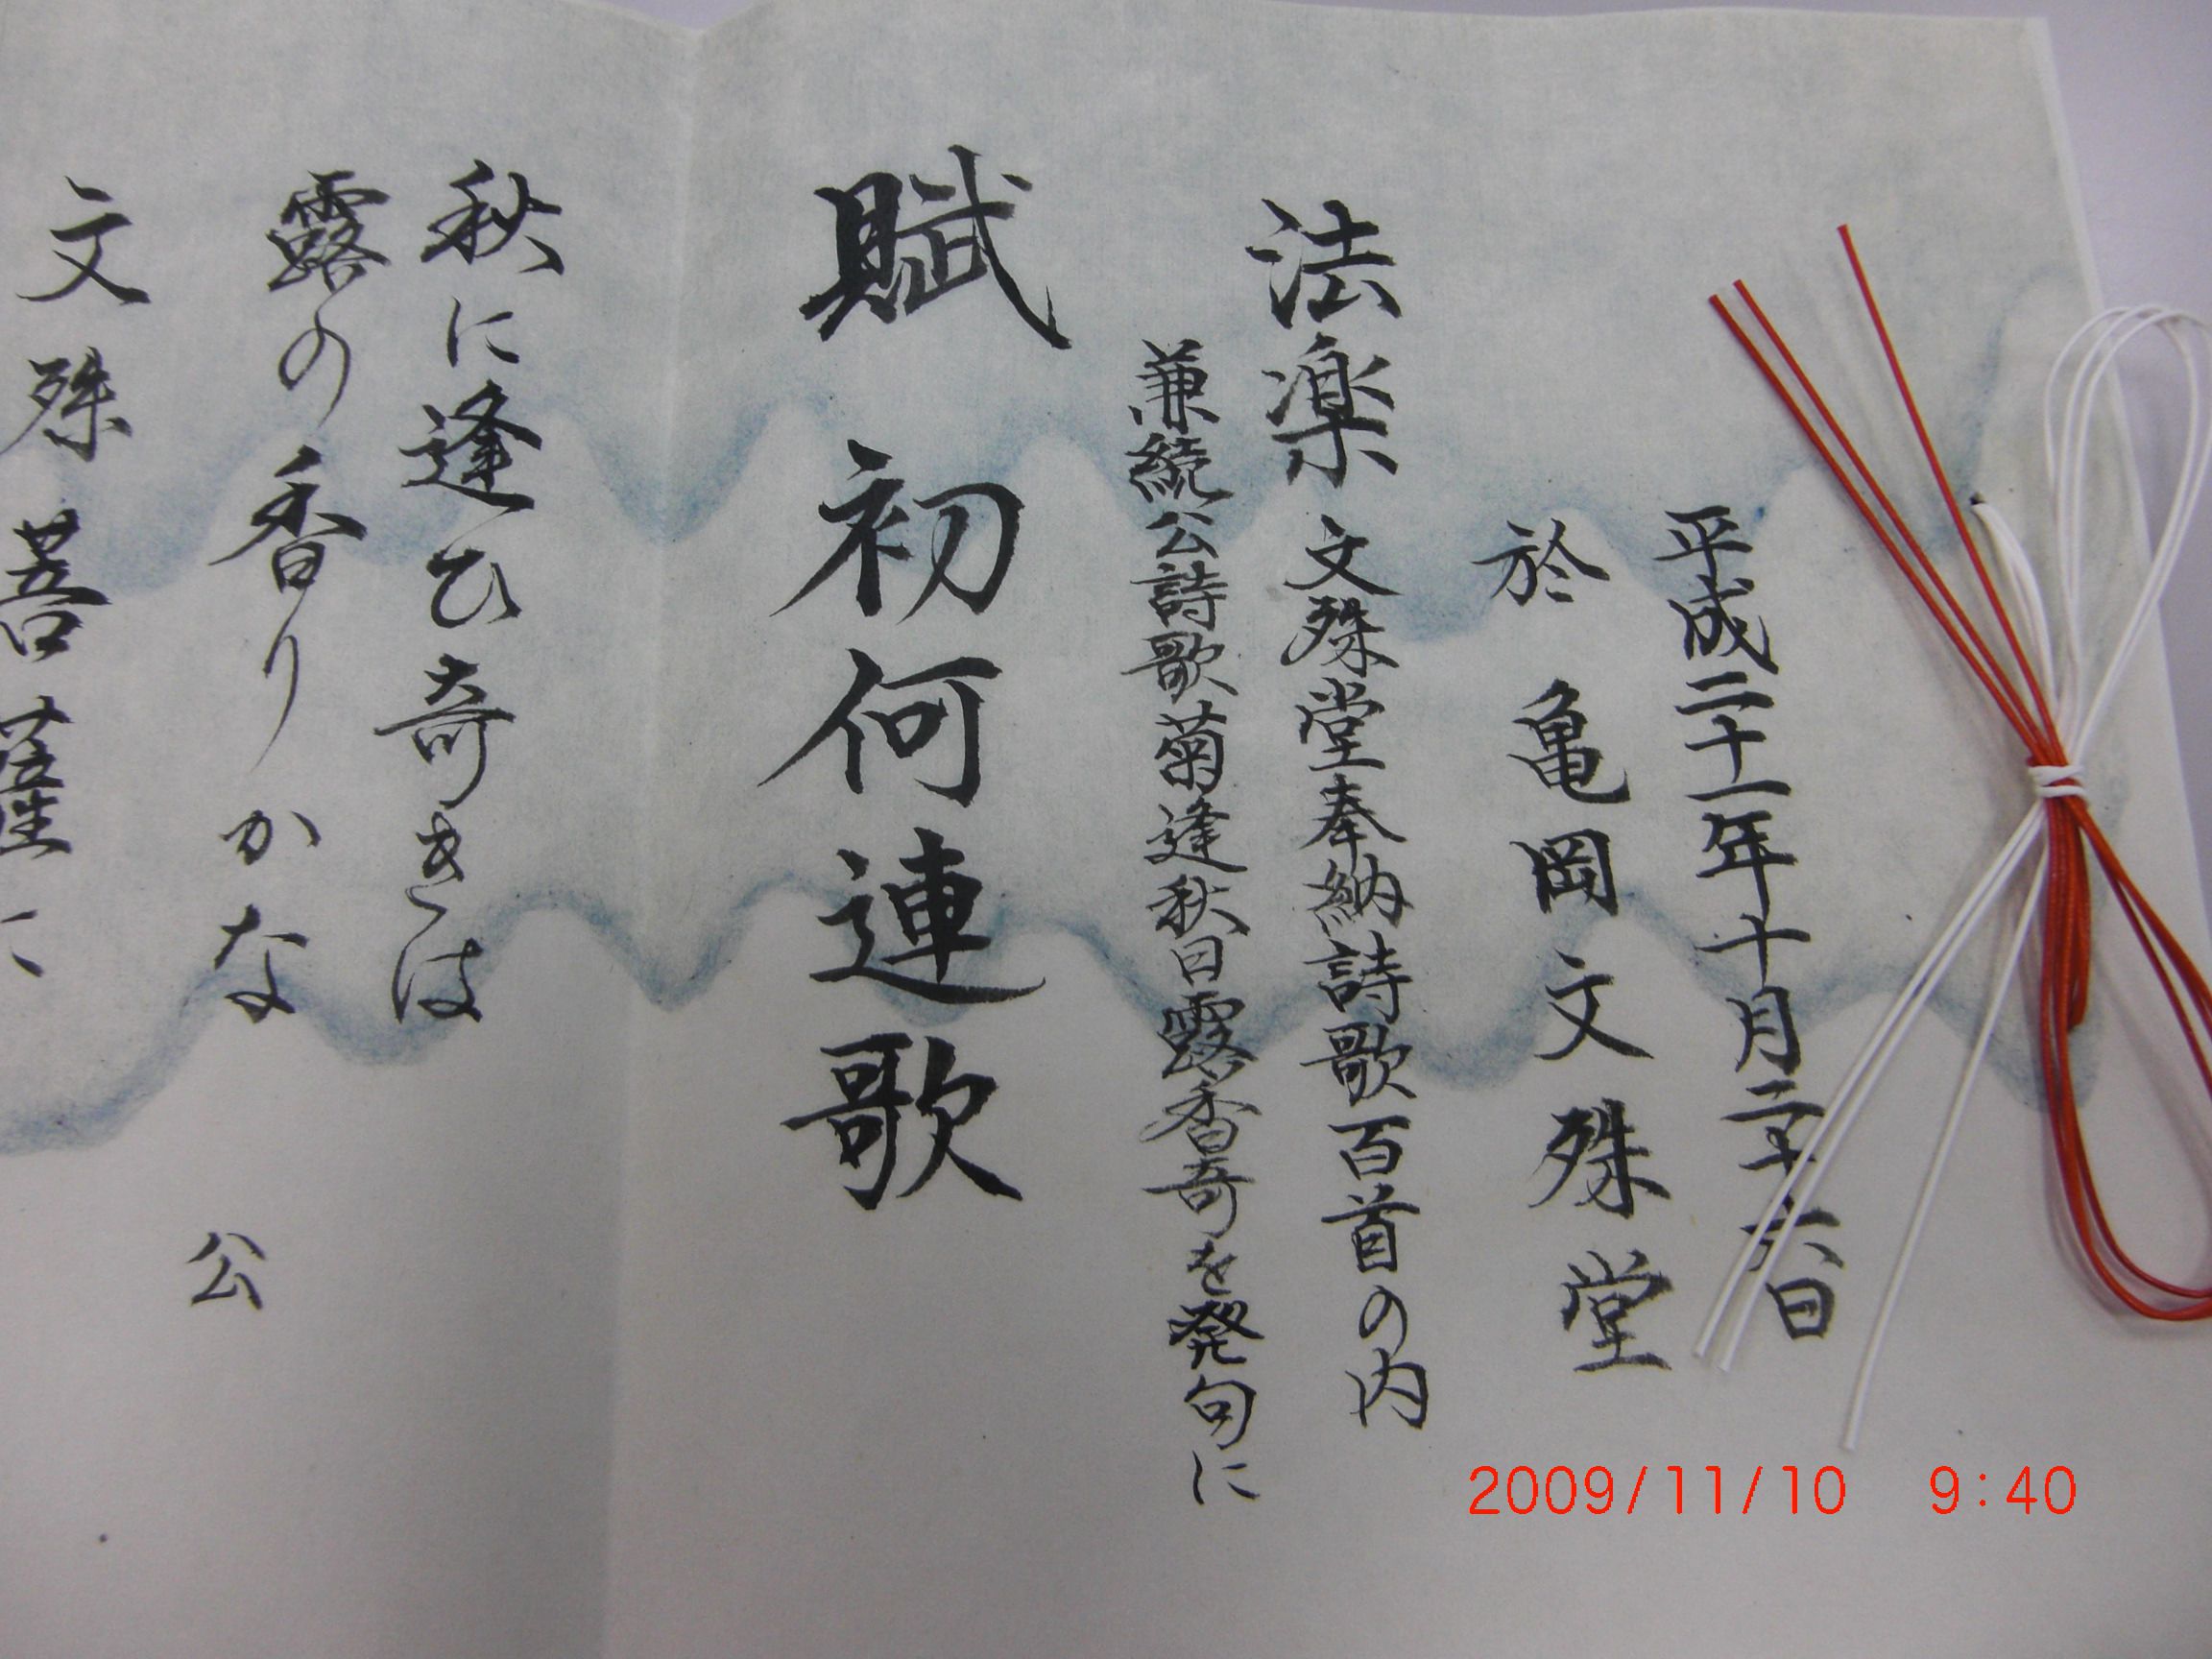 平成二十一年十月二十六日
於 亀岡文殊堂
法楽 文殊堂奉納詩歌百首の内
兼続公詩歌菊逢秋日露香奇を発句に
賦 初何連歌
秋に逢ひ奇きは
露の香りかな
公
文殊菩薩に
2009/11/10 9:40